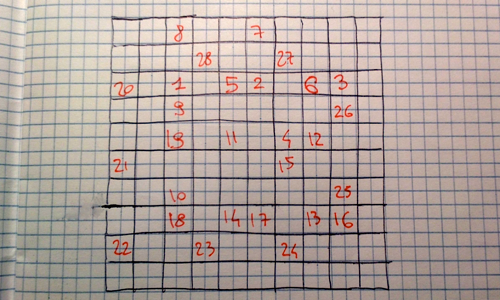 8 7
28 27
20 1 5 2 6 3
9 26
19 11 4 12
21 15
10 25
18 14 17 13 16
22 23 24